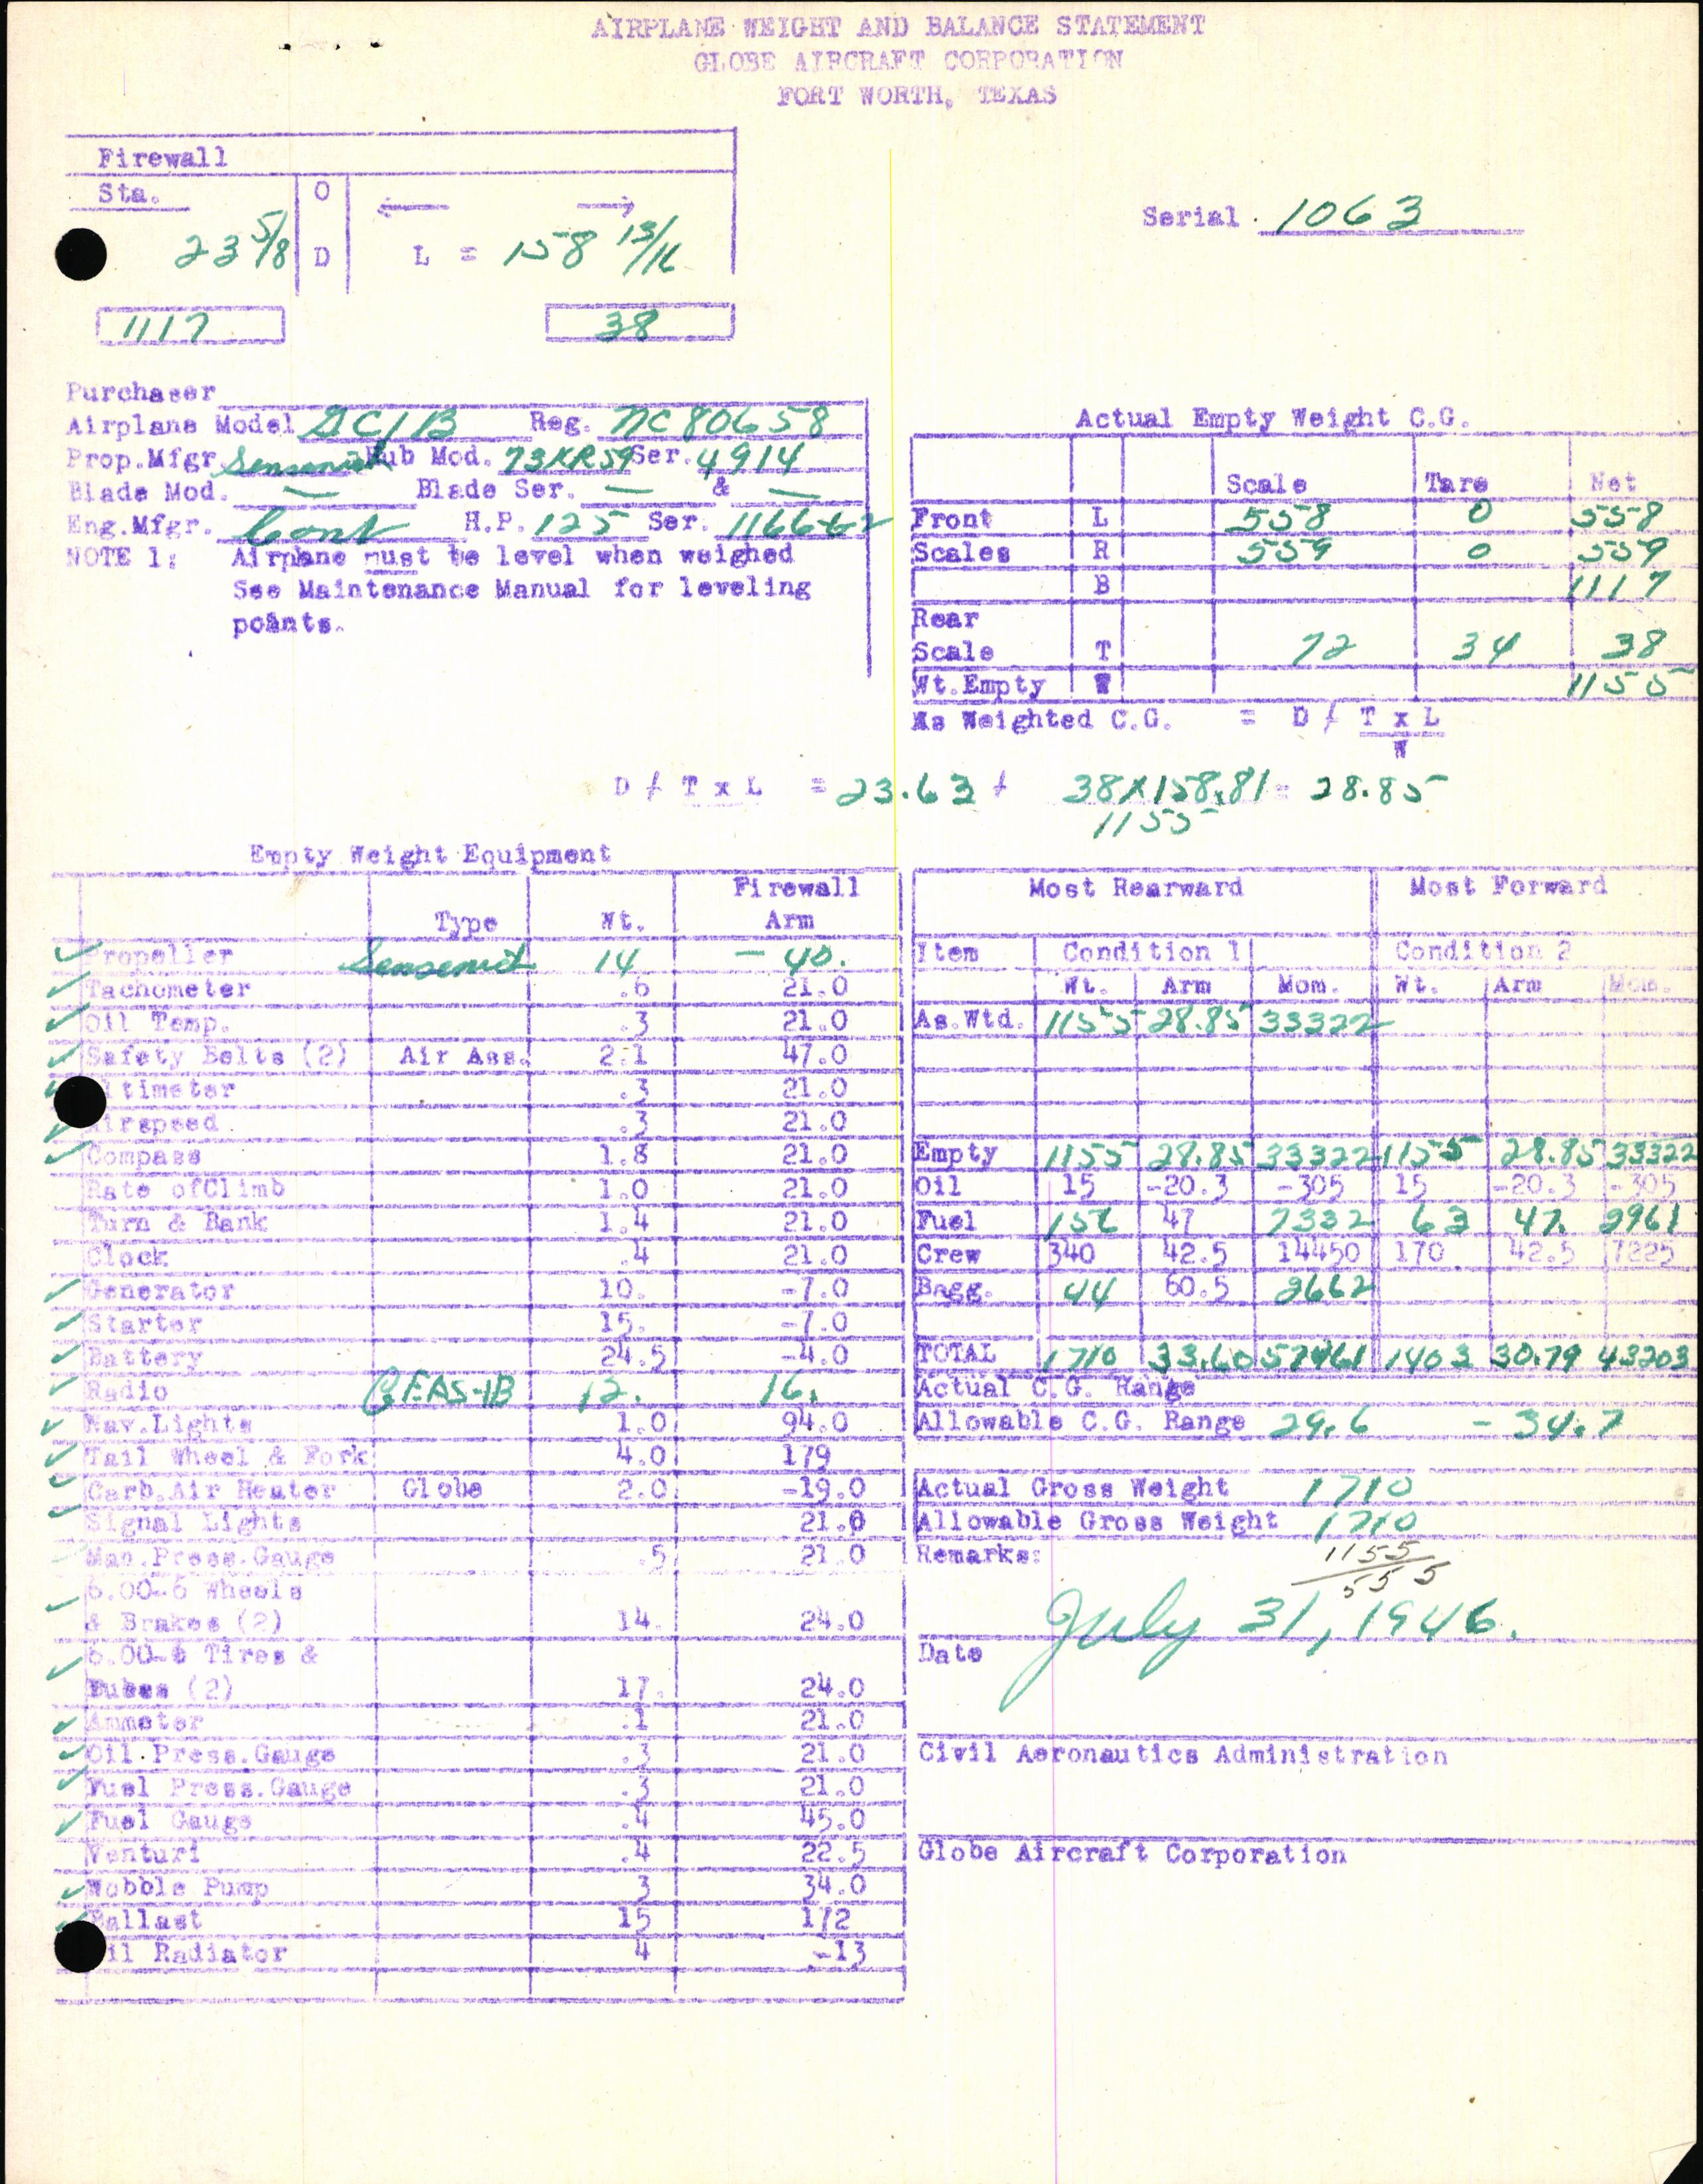 AIRPLANE WEIGHT AND BALANCE STATEMENT
GLOBE AIRCRAFT CORPORATION
FORT WORTH, TEXAS
Firewall
Sta. O
23 5/8 D L = 158 13/16
Serial 1063
1117 38
Purchaser
Airplane Model GC1B Reg. NC80658
Prop.Mfgr Sensenich Hub Mod. 73KR59 Ser. 4914
Blade Mod. — Blade Ser. — & —
Eng.Mfgr. Cont H.P. 125 Ser.
NOTE 1: Airplane must be level when weighed
See Maintenance Manual for leveling
points.
Actual Empty Weight C.G.
Scale Tare Net
Front L 558 0 558
Scales R 559 0 559
B 1117
Rear
Scale T 72 34 38
Wt.Empty W 1155
As Weighted C.G. = D / T x L
W
D / T x L = 23.63 + 38X158.81 = 28.85
1155
Empty Weight Equipment
Firewall
Type Wt. Arm
Propeller Sensenich 14 - 40.
Tachometer .6 21.0
Oil Temp. .3 21.0
Safety Belts (2) Air Ass. 2.1 47.0
ltimeter .3 21.0
irspeed .3 21.0
Compass 1.8 21.0
Rate ofClimb 1.0 21.0
Turn & Bank 1.4 21.0
Clock .4 21.0
Generator 10. -7.0
Starter 15. -7.0
Battery 24.5 -4.0
Radio 12. 16.
Nav.Lights 1.0 94.0
Tail Wheel & Fork 4.0 179
Carb.Air Heater Globe 2.0 -19.0
Signal Lights 21.0
Man.Press.Gauge .5 21.0
6.00-6 Wheels
& Brakes (2) 14. 24.0
6.00-6 Tires &
Tubes (2) 17. 24.0
Ammeter .1 21.0
Oil Press.Gauge .3 21.0
Fuel Press.Gauge .3 21.0
Fuel Gauge .4 45.0
Venturi .4 22.5
Wobble Pump 3 34.0
Ballast 15 172
il Radiator 4 -13
Most Rearward Most Forward
Item Condition 1 Condition 2
Wt. Arm Mom. Wt. Arm Mom.
As.Wtd. 1155 28.85 33322
Empty 1155 28.85 33322 1155 28.85 33322
Oil 15 -20.3 -305 15 -20.3 -305
Fuel 156 47 7332 63 47. 2961
Crew 340 42.5 14450 170 42.5 7225
Bagg. 44 60.5 2662
TOTAL 1710 33.60 57461 1403 30.79 43203
Actual C.G. Range
Allowable C.G. Range 29.6 - 34.7
Actual Gross Weight 1710
Allowable Gross Weight 1710
Remarks: 1155
555
July 31, 1946.
Date
Civil Aeronautics Administration
Globe Aircraft Corporation